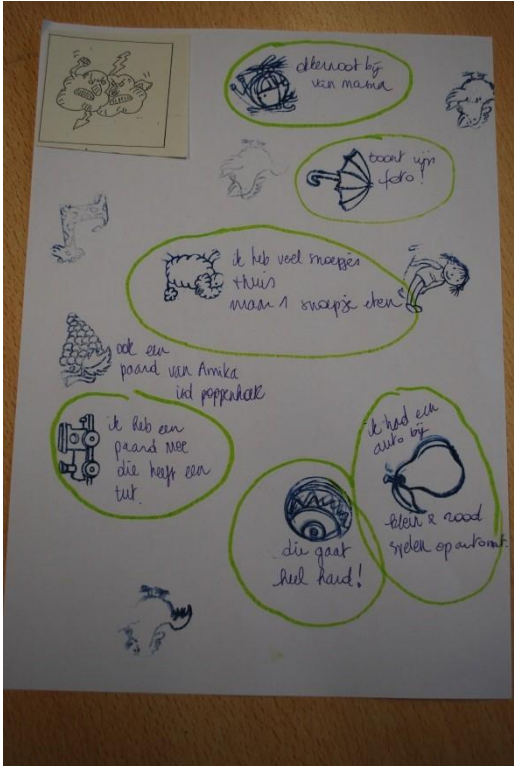 okkernoot bij
van mama
toont zijn
foto!
ik heb veel snoepjes
thuis
maar 1 snoepje eten
ook een
paard van Amika
in poppenhoek
ik heb een
paard mee
die heeft een
tut.
ik had een
auto bij
klein & rood
spelen op automat.
die gaat
heel hard!